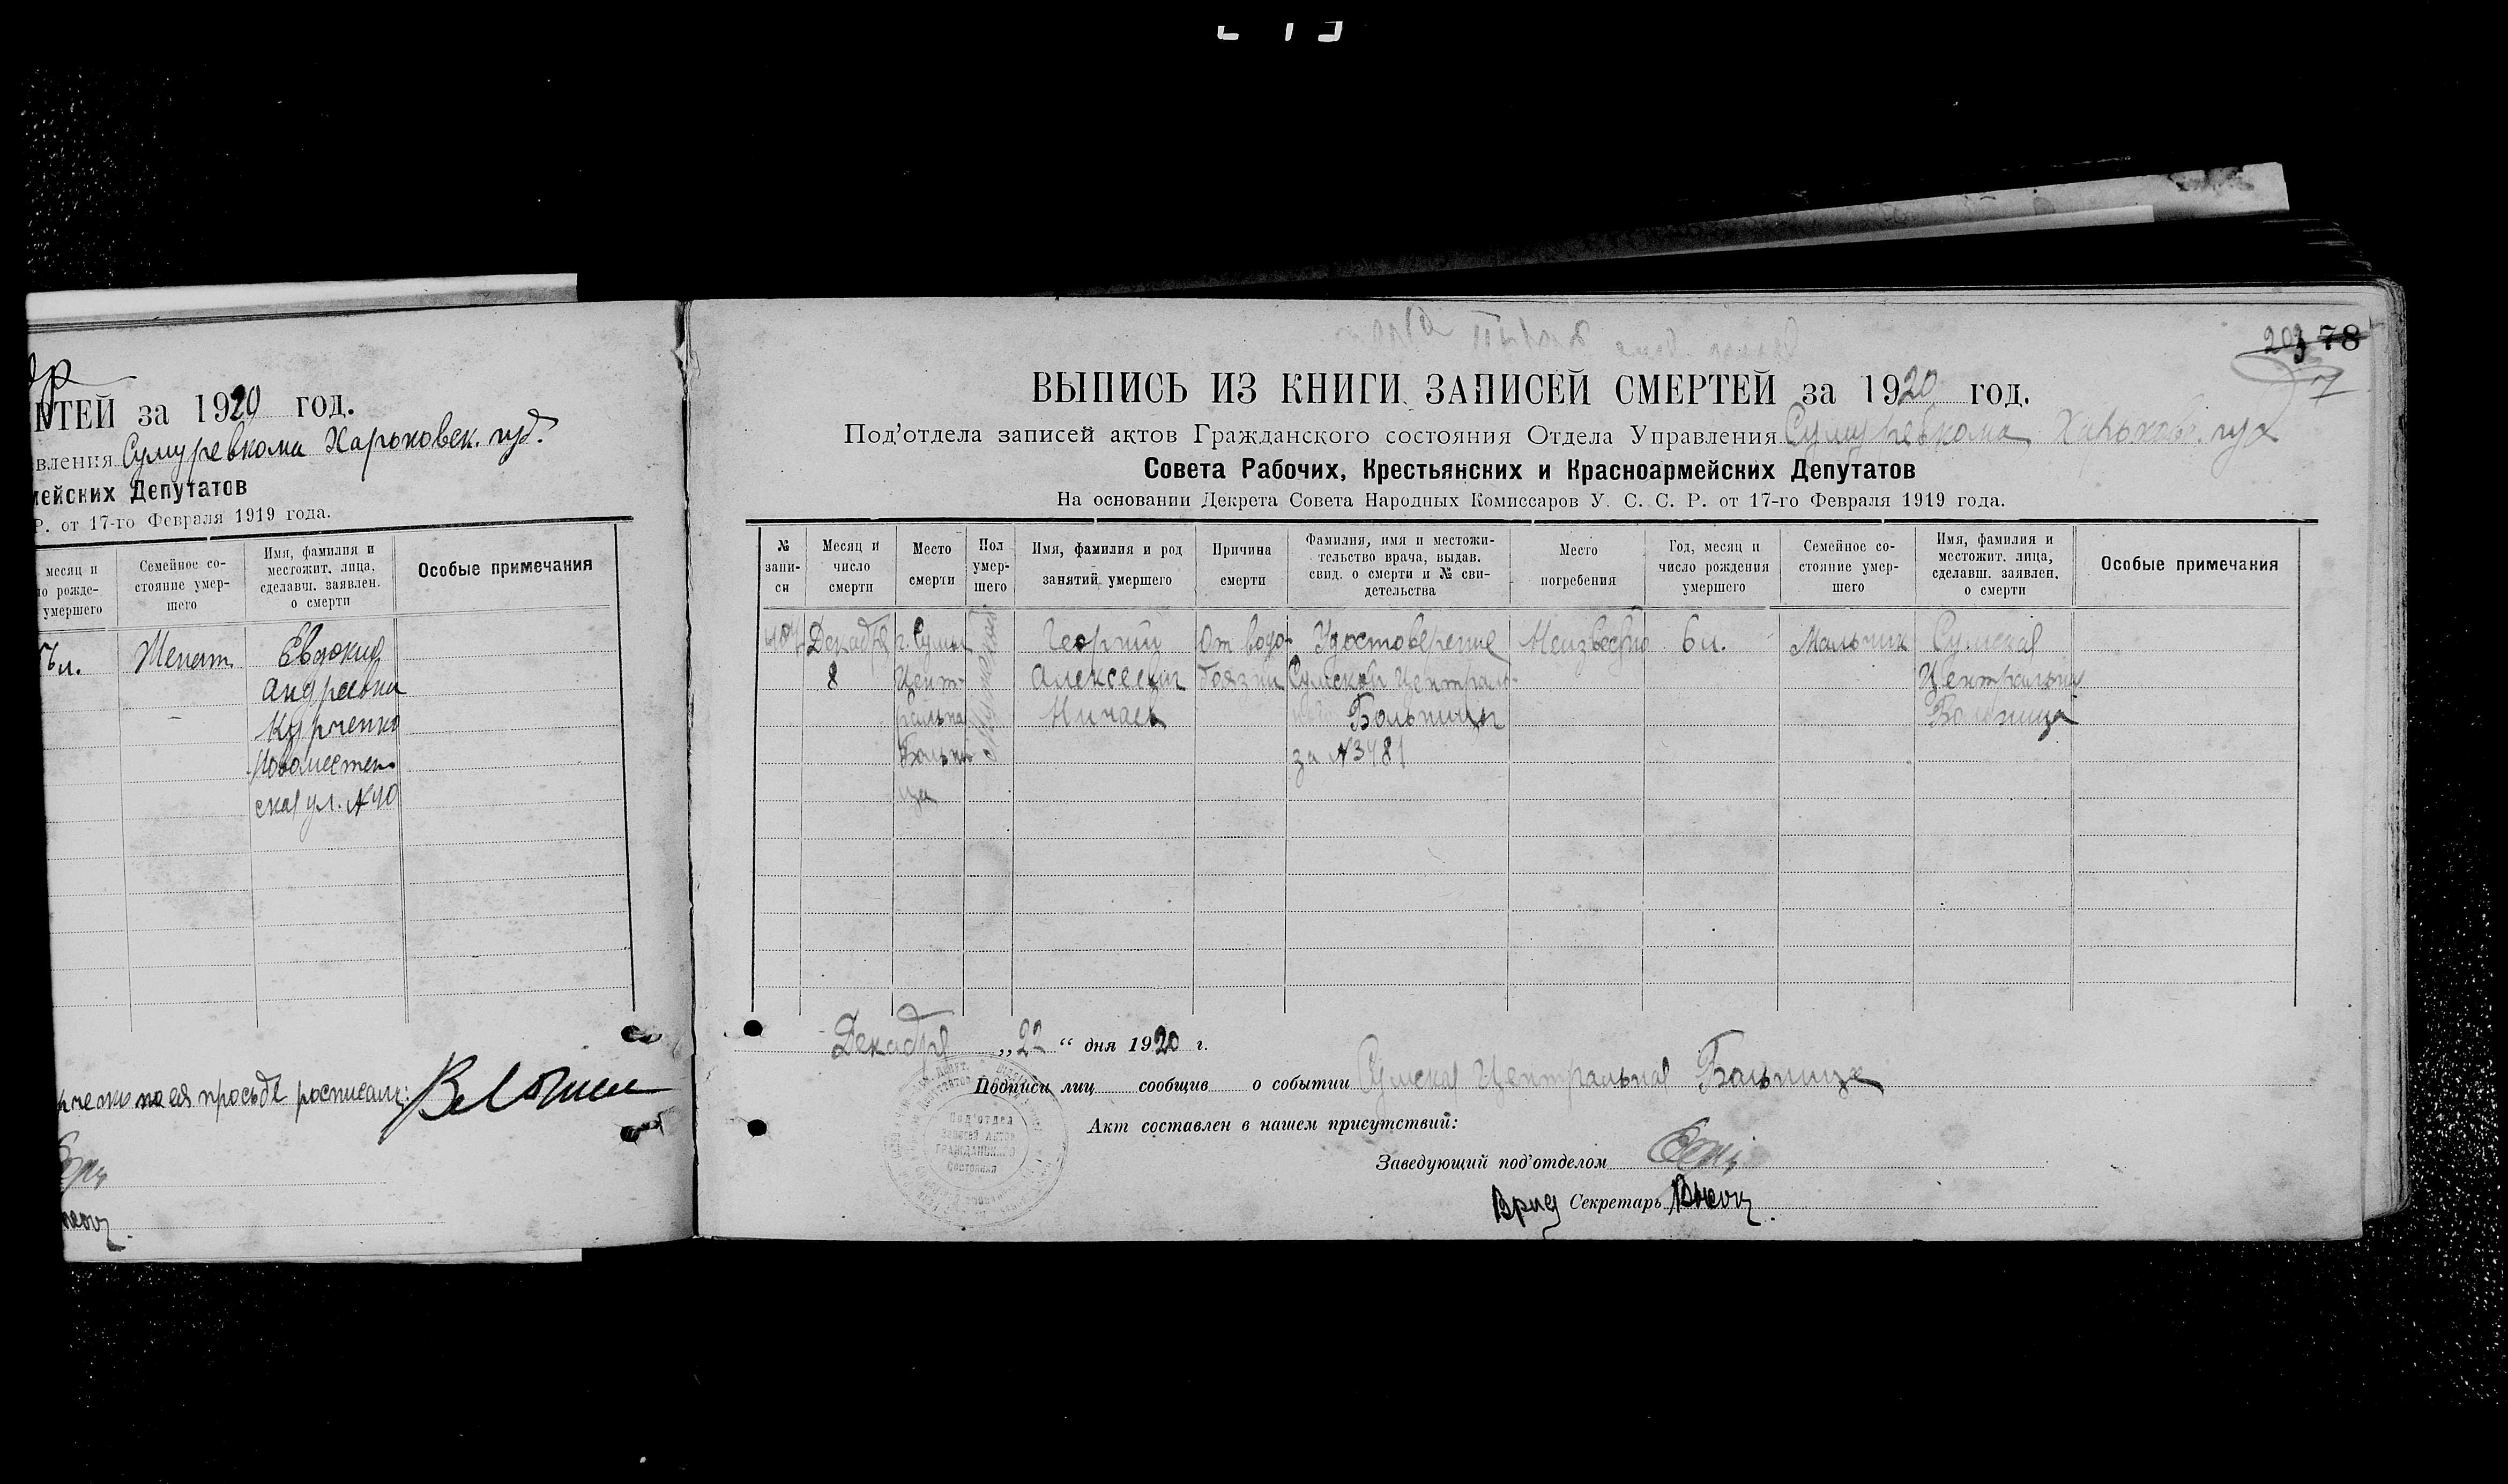 РТЕЙ за 1920 год.
вления Сумуревкома Харьковск. губ.
мейских Депутатов
Р. от 17-го Февраля 1919 года.
месяц и
ло рожде-
умершего
Семейное со-
стояние умер-
шего
Имя, фамилия и
местожит. лица,
сделавш. заявлен.
о смерти
Особые примечания
Женат
Евдокия
Андреевна
Курченко
Новоместен
ская ул. №40
рченко по ея просьбе росписалс:
203 78
7
ВЫПИСЬ ИЗ КНИГИ ЗАПИСЕЙ СМЕРТЕЙ за 1920 год.
Под'отдела записей актов Гражданского состояния Отдела Управления Сумуревкома Харьковс. губ
Совета Рабочих, Крестьянских и Красноармейских Депутатов
На основании Декрета Совета Народных Комиссаров У. С. С. Р. от 17-го Февраля 1919 года.
№
запи-
си
Месяц и
число
смерти
Место
смерти
Пол
умер-
шего
Имя, фамилия и род
занятий умершего
Причина
смерти
Фамилия, имя и местожи-
тельство врача, выдав.
свид. о смерти и № сви-
детельства
Место
погребения
Год, месяц и
число рождения
умершего
Семейное со-
стояние умер-
шего
Имя, фамилия и
местожит. лица,
сделавш. заявлен.
о смерти
Особые примечания
Декабря
8
г. Сумы
Цент-
ральна
Больни
ца
Мужеской
Георгий
Алексеевич
Ничаев
От водо-
боязни
Удостоверение
Сумской Централь-
Больницы
за №3481
Неизвестно
6 л.
Мальчик
Сумская
Центральная
Больница
Декабря „22“ дня 1920 г.
Подписи лиц сообщив о событии Сумская Центральная Больница
Акт составлен в нашем присутствий:
Заведующий под'отделом
Врид Секретарь
Под'отдел
Записей Актов
ГРАЖДАНСКАГО
Состояния